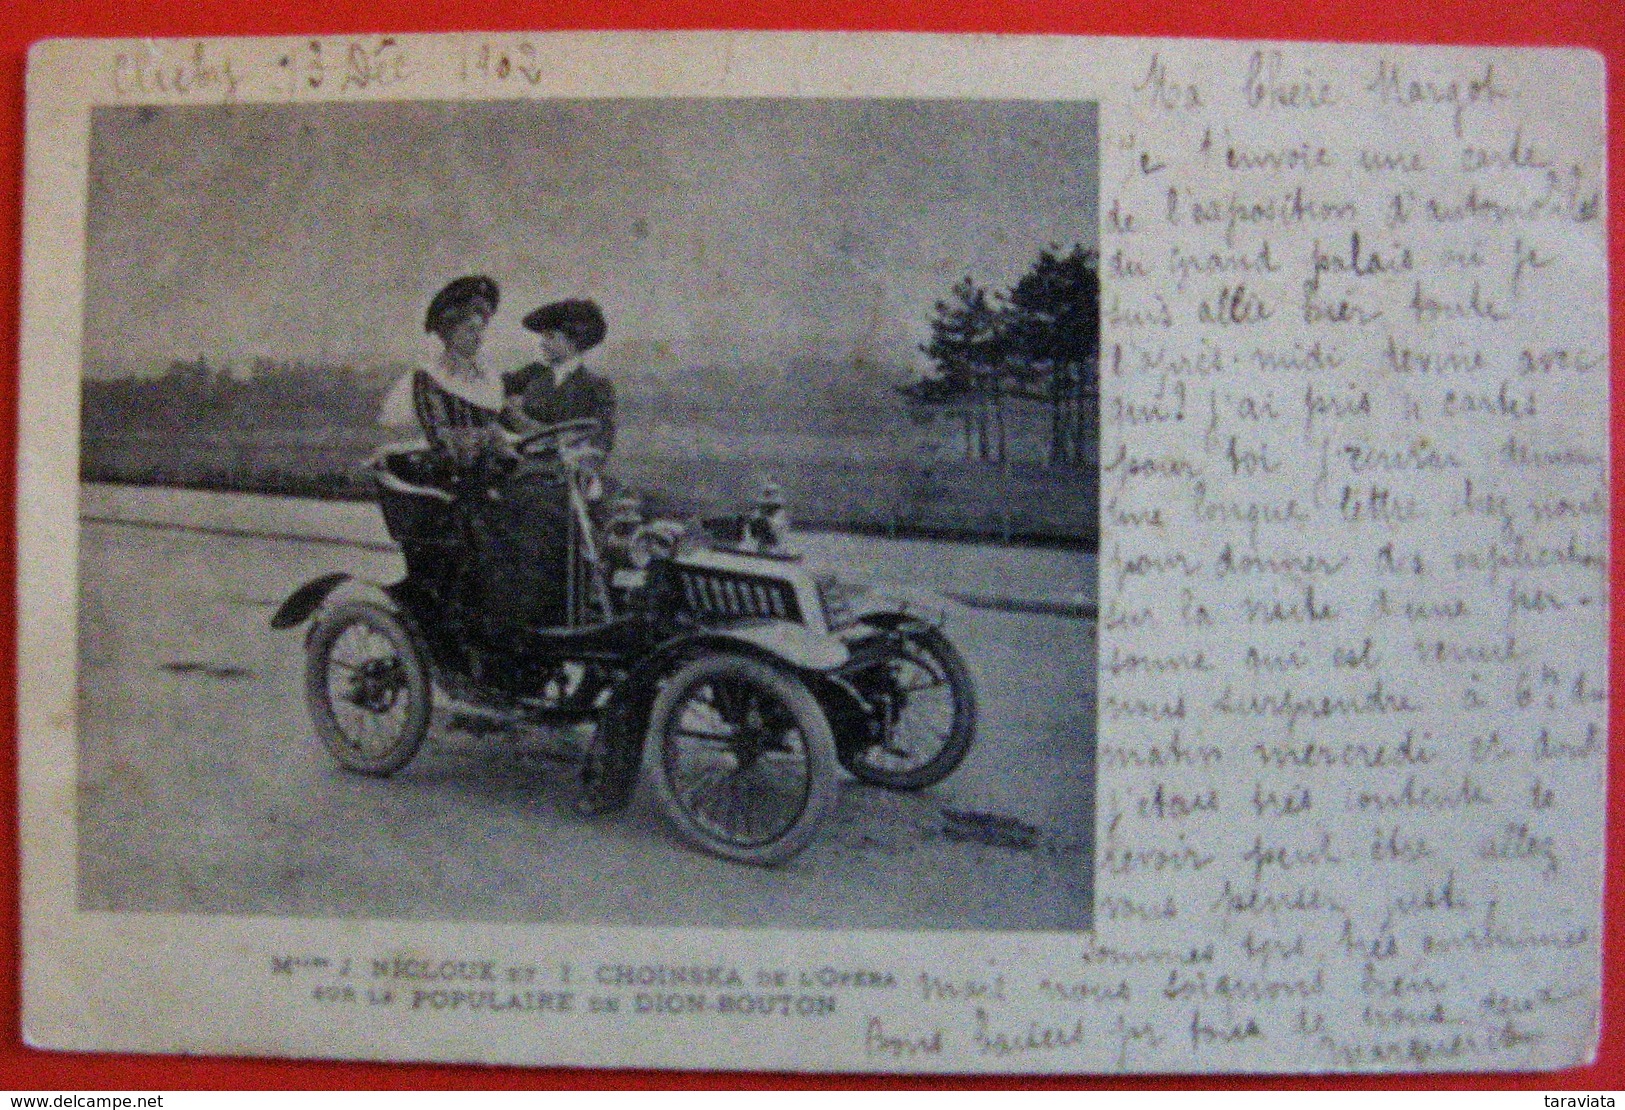 Clichy 13 Déc 1902
Ma Chère Margot
Je t'envoie une carte
de l'exposition d'automobiles
du grand palais où je
suis allée hier toute
l'après-midi devine avec
qui? j'ai pris 4 cartes
pour toi
une longue lettre chez nous
pour donner des explications
sur la visite d'une per-
sonne qui est venue
nous surprendre à 6h du
matin mercredi et dont
j'étais très contente de
revoir peut être allez
vous penser juste,
sommes tjrs très enrhumées
mais nous soignons bien
Bons baisers pr tous de nous deux
Marguerite
Mmes J. NICLOUX ET I. CHOINSKA DE L'OPERA
SUR LA POPULAIRE DE DION-BOUTON
delcampe.net
taraviata